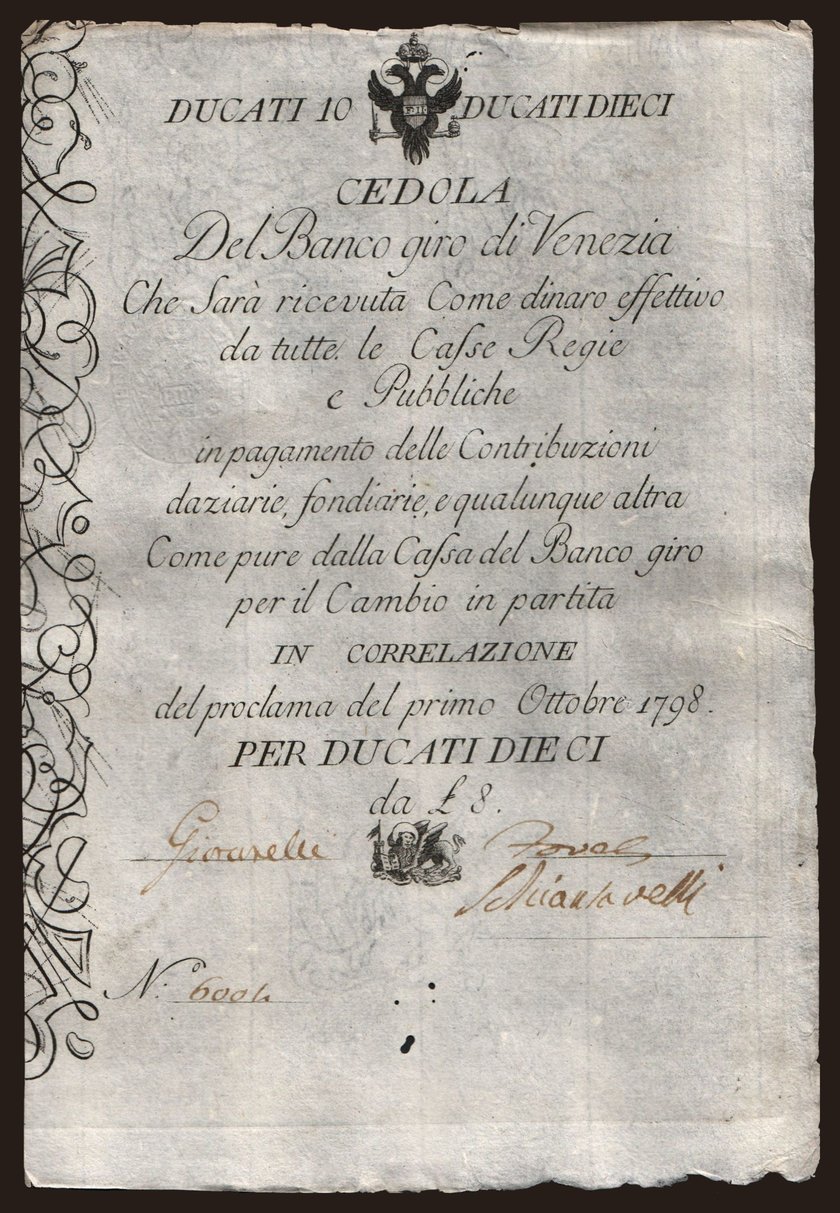 DUCATI 10 DUCATI DIECI
F II
CEDOLA
Del Banco giro di Venezia
Che Sarà ricevuta Come dinaro effettivo
da tutte le Caſse Regie
e Pubbliche
in pagamento delle Contribuzioni
daziarie, fondiarie, e qualunque altra
Come pure dalla Caſsa del Banco giro
per il Cambio in partita
IN CORRELAZIONE
del proclama del primo Ottobre 1798.
PER DUCATI DIECI
da £ 8.
Giovanelli
Schiantarelli
N.º